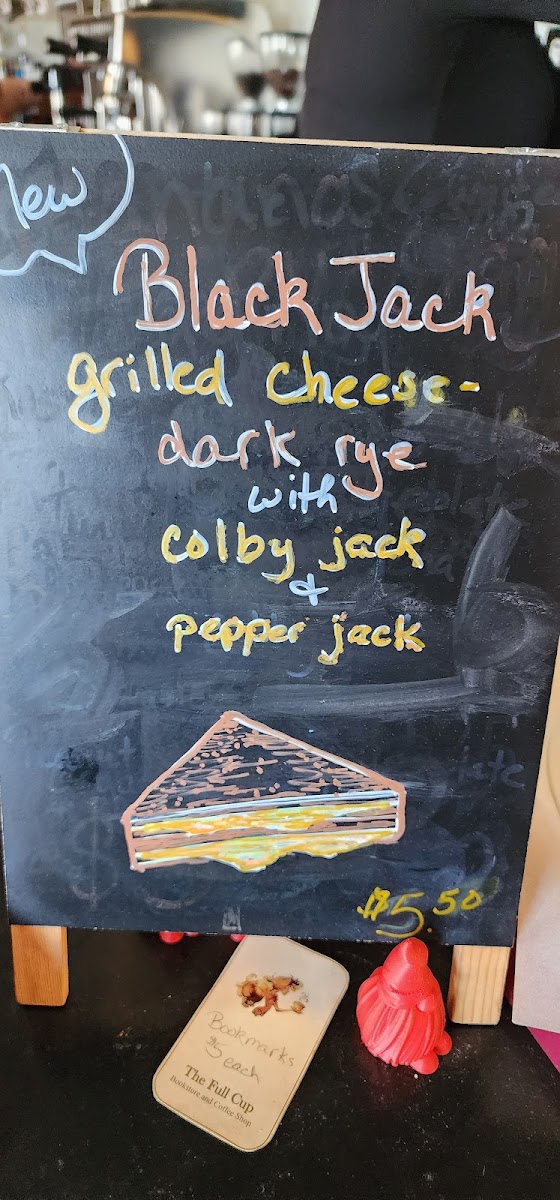 New
Black Jack
grilled cheese-
dark rye
with
colby jack
&
pepper jack
$5.50
Bookmarks
$5 each
The Full Cup
Bookstore and Coffee Shop